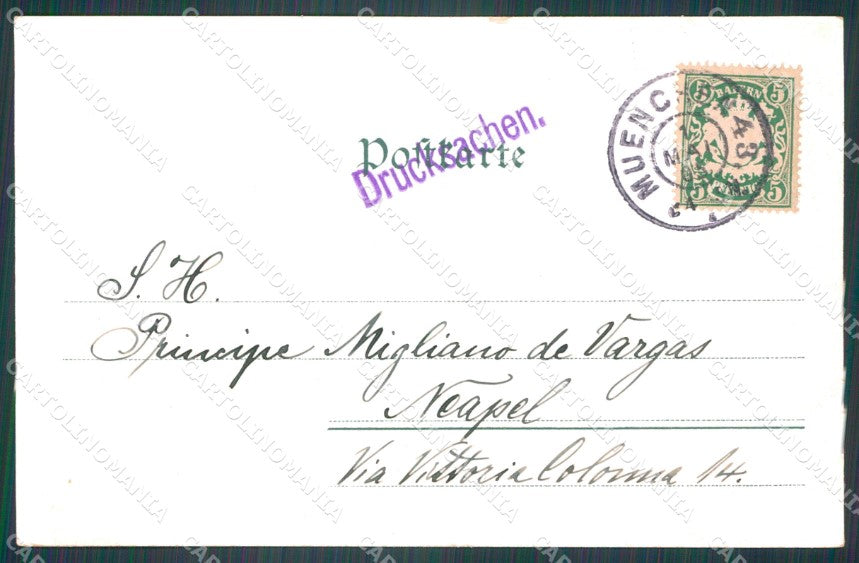 Postkarte
Drucksachen.
MUENCHEN 43
MAI
BAYERN
5 5
5 5
S. H.
Principe Migliano de Vargas
Neapel
Via Vittoria Colonna 14.
CARTOLINOMANIA